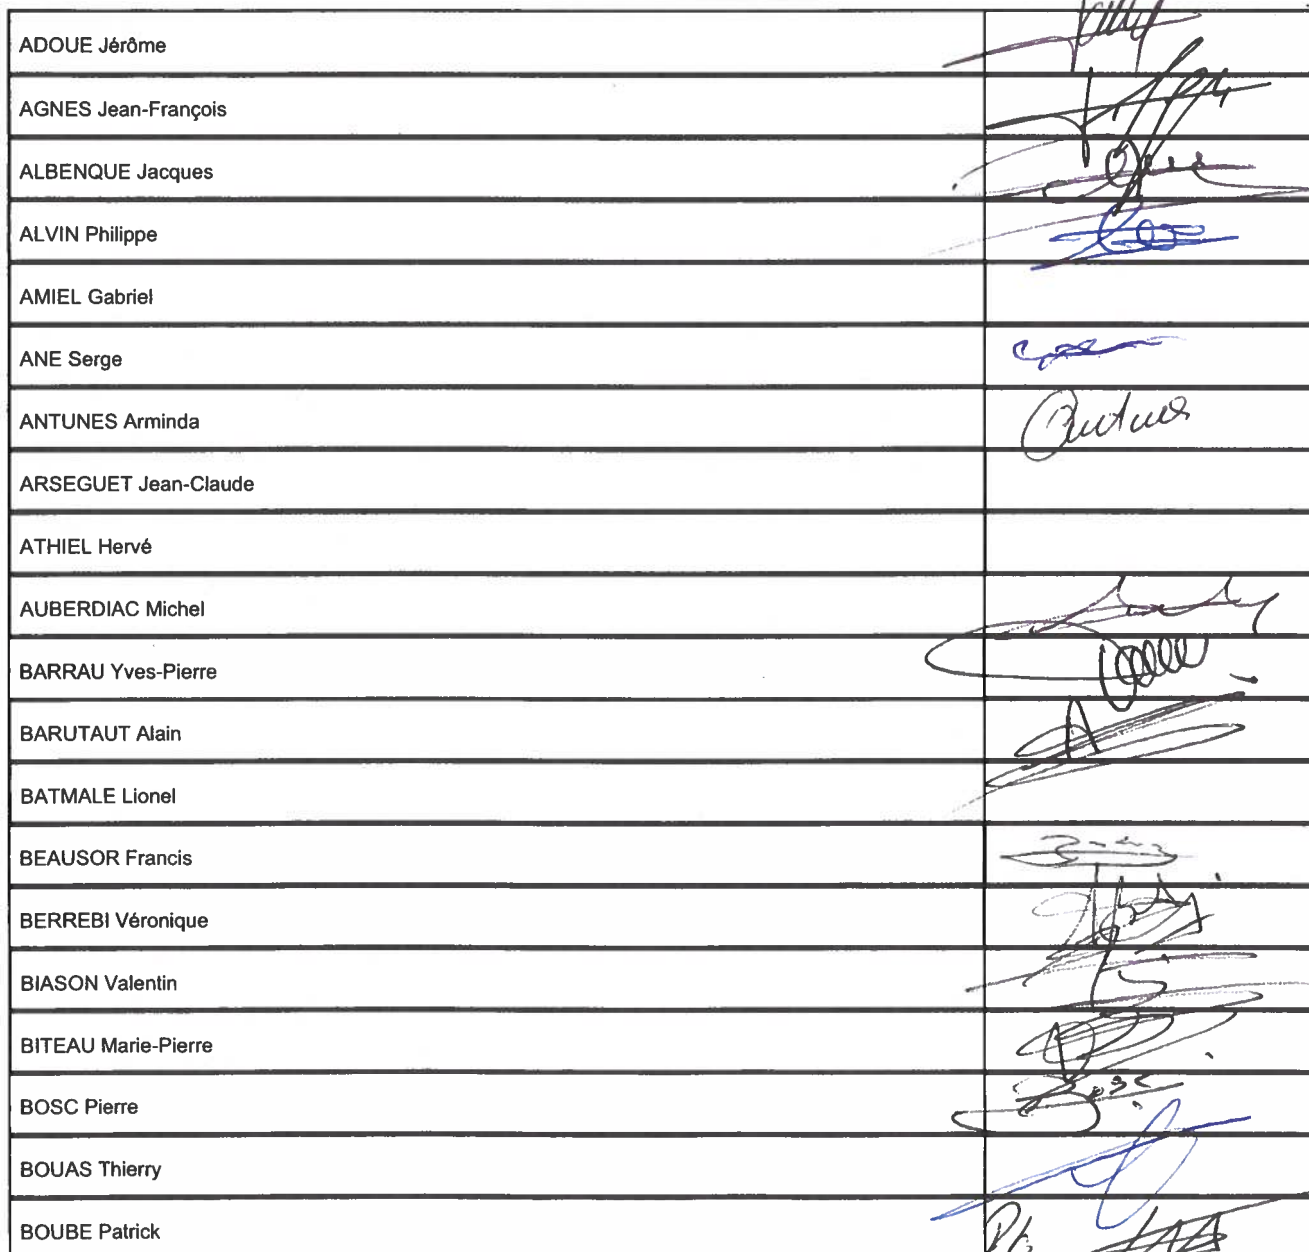 ADOUE Jérôme
AGNES Jean-François
ALBENQUE Jacques
ALVIN Philippe
AMIEL Gabriel
ANE Serge
ANTUNES Arminda
Antunes
ARSEGUET Jean-Claude
ATHIEL Hervé
AUBERDIAC Michel
BARRAU Yves-Pierre
BARUTAUT Alain
BATMALE Lionel
BEAUSOR Francis
BERREBI Véronique
BIASON Valentin
BITEAU Marie-Pierre
BOSC Pierre
Bosc
BOUAS Thierry
BOUBE Patrick